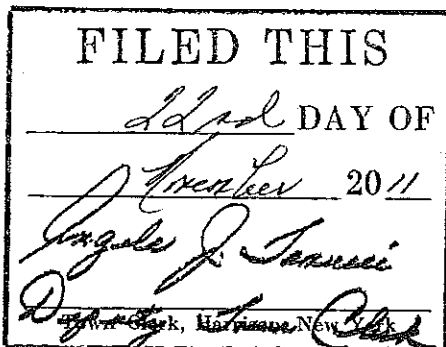 FILED THIS
22nd DAY OF
November 2011
Angelo J.
Deputy Town Clerk
Town Clerk, Harrison, New York